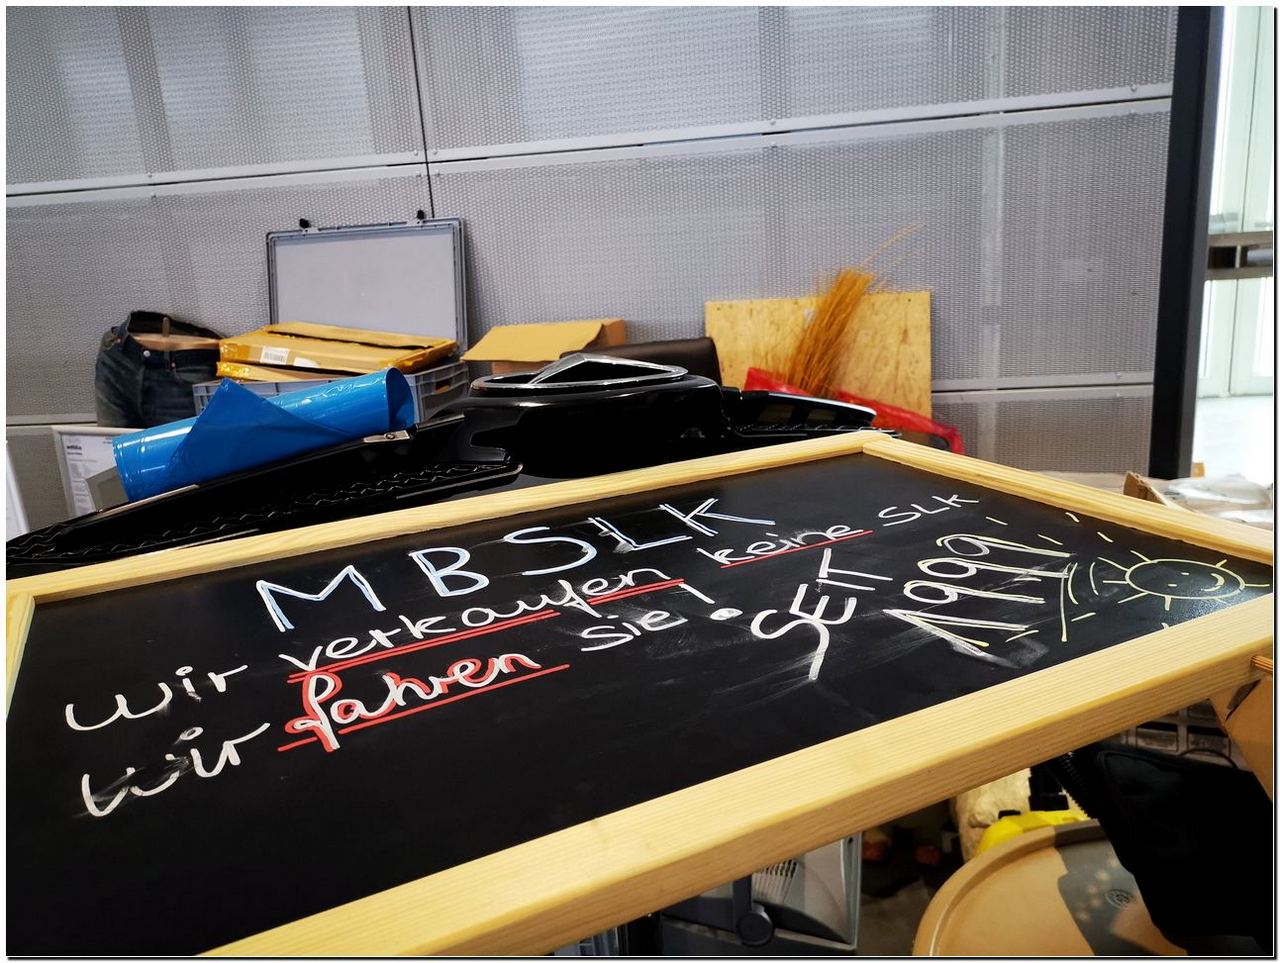 MBSLK
wir verkaufen keine SLK
wir fahren sie!
SEIT 1999